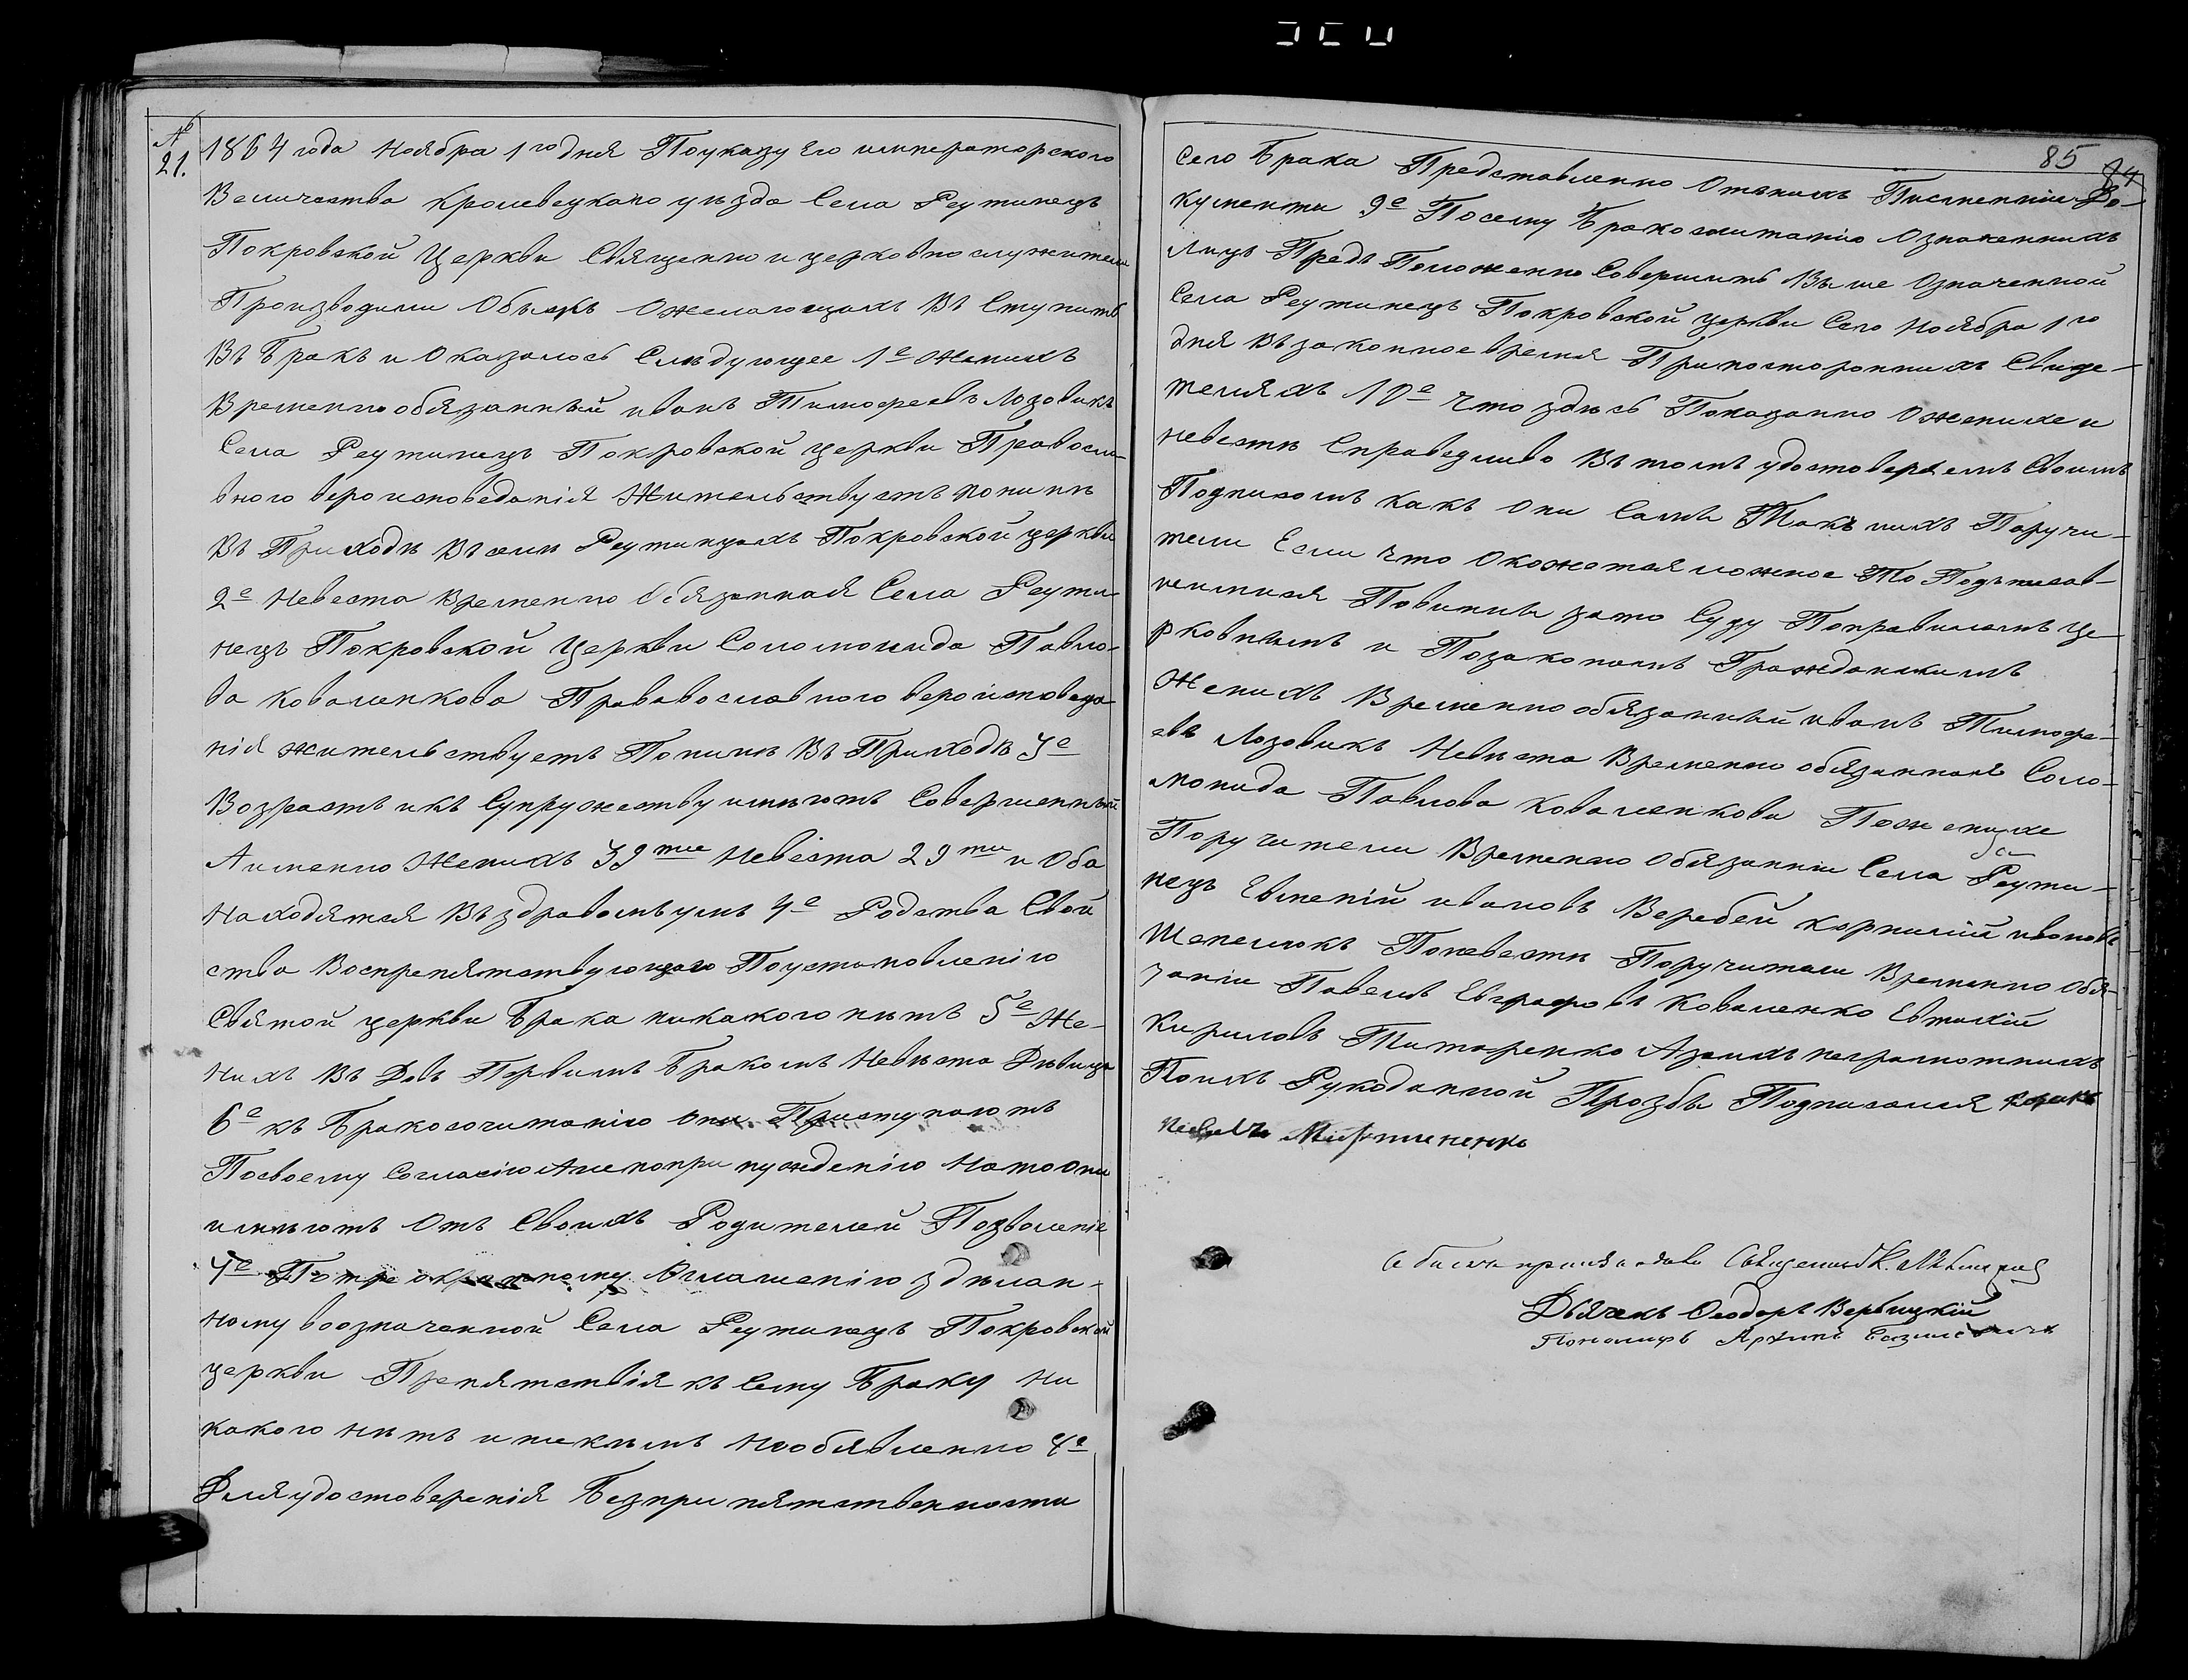 №
21.
1864 года Ноября 1го дня Поуказу Его императорского
Величества Кролевецкаго уезда Села Реутинецъ
Покровской Церкви Священно и церковно служители
Производили Обыскъ Ожелающихъ Въ Ступить
Въ Бракъ и Оказалось Следующее 1е Женихъ
Временно обязанный иванъ Тимофеевъ Лозовикъ
Села Реутинецъ Покровской церкви Правосла-
вного вероисповеданія Жительствуетъ поныне
Въ Приходе Въ селе Реутинцахъ Покровской церкви
2е Невеста Временно Обязанная Села Реути-
нецъ Покровской Церкви Соломонида Павло-
ва коваленкова Прававославного вероисповеда
нія жительствуетъ Поныне Въ Приходе 3е
Возрастъ икъ Супружеству имеютъ Совершенный
Аименно Женихъ 39ти Невеста 29ти и Оба
Находятся Въ здравомъ уме 4е Родства Свой
ства Воспрепятствующаго Поустановленію
Святой церкви Брака никакого нетъ 5е Же-
нихъ Въ Довъ Первымъ Бракомъ Невеста Девица
6е къ Бракосочитанію Они Приступаютъ
Посвоему Согласію Анепопри нуждению Нато они
имеютъ Отъ Своихъ Родителей Позволеніе
7е Потре Огласенію зделан-
ному воозначенной Села Реутинецъ Покровской
церкви Препятствія къ Сему Браку Ни
какого нетъ иникемъ Необявленно 8е
Для удостоверенія Безпри пятственности
85
84
Сего Брака Представленно Отнихъ Писменніи До-
кументи 9е Посему Бракосочитанію Означенныхъ
Лицъ Предъ Положенно Совершить Выше Означенной
Села Реутинецъ Покровской церкви Сего Ноября 1го
дня Въ законное время Припосторонних Свиде-
теляхъ 10е что здесь Показанно Оженихе и
невесте Справедливо Въ томъ удостоверяемъ Своимъ
Подписомъ какъ Они Сами Такъ иихъ Поручи-
тели Если что Окажется ложное То Подъписав-
шиися Повинны зато Суду Поправиламъ це-
рковнымъ и Позаконамъ Гражданскимъ
Женихъ Временно обязанный иванъ Тимофе-
евъ Лозовикъ Невеста Временно обязанная Соло-
монида Павлова Коваленкова Пожених
Поручители Временно Обязанни Села Реути-
нецъ Евменій ивановъ Веребей Корнилій ивановъ
Шепелюкъ Поневесте Поручители Временно Обя-
занни Павелъ Евграфовъ Коваленко Евтихій
Кириловъ Титаренко Азаихъ неграмотныхъ
Поихъ Рукоданной Прозбы Подписался
Павелъ Мартиненко
Священникъ
Дьячекъ Феодоръ Вербицкій
Пономарь Архипъ Базилевичъ